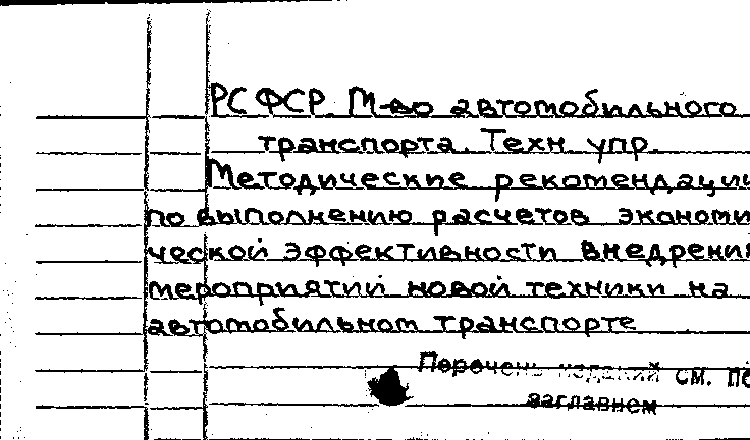 РСФСР. М-во автомобильного
транспорта. Техн. упр.
Методические рекомендации
по выполнению расчетов экономи
ческой эффективности внедрения
мероприятий новой техники на
автомобильном транспорте
Перечень изданий см. по
заглавием